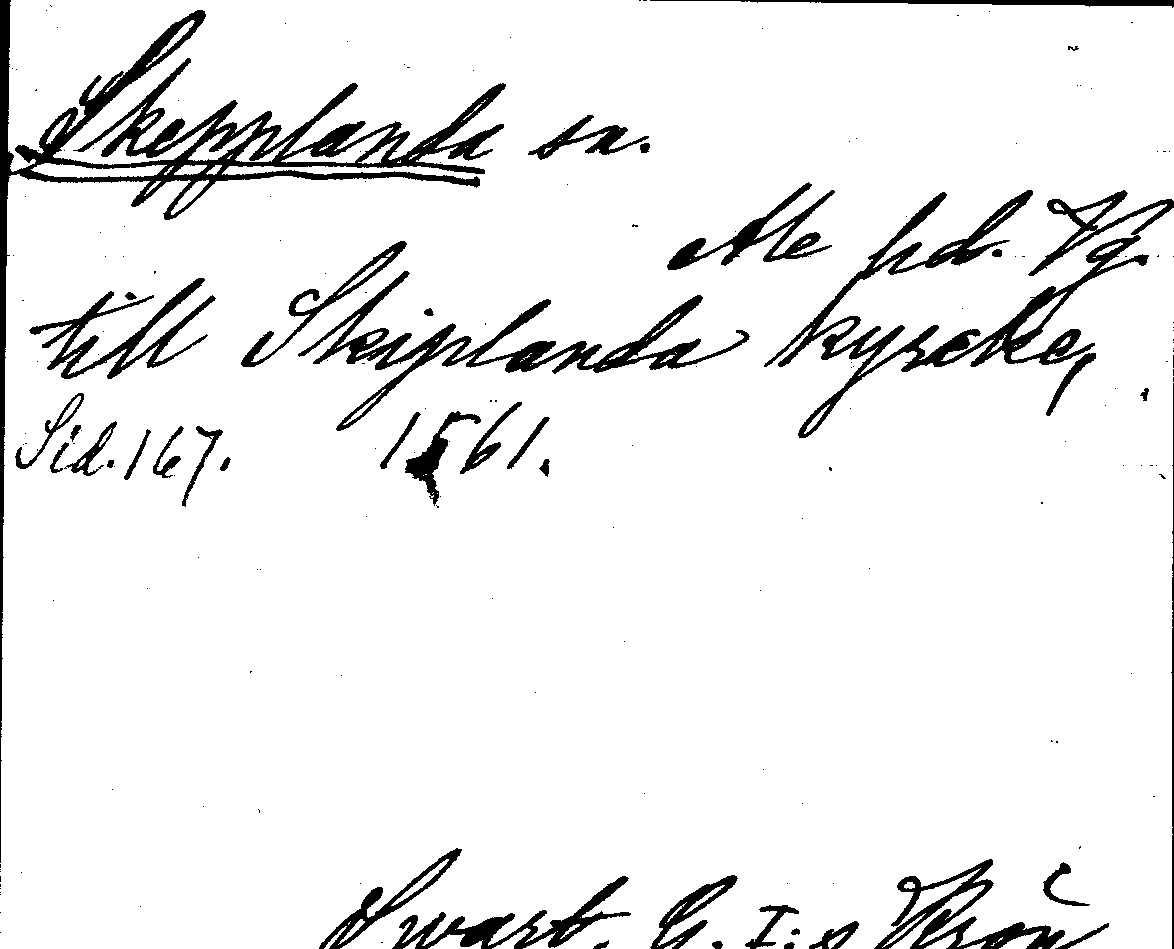 Skepplanda sn.
Ale hd. Vg.
till Skiplanda kyrcke,
Sid. 167. 1561.
Swart. G. I:s Krön